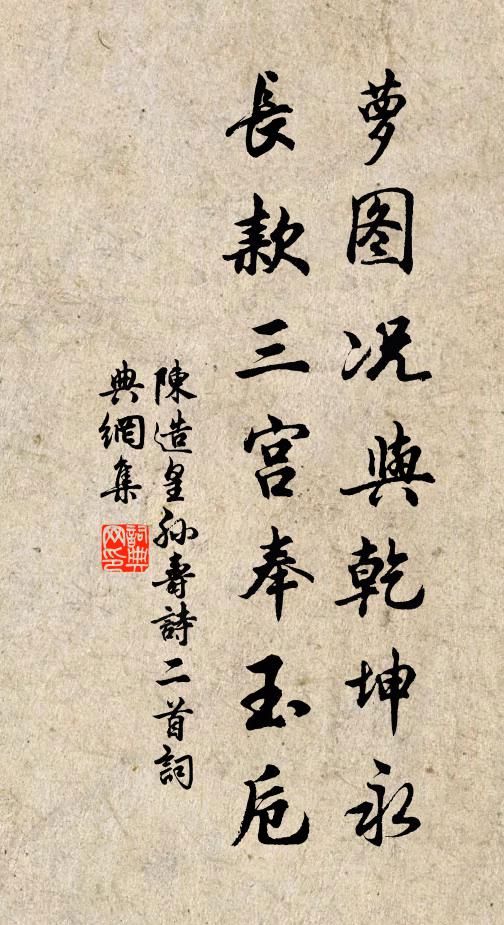 萝图况與乾坤永
長款三宫奉玉卮
陳造皇孙壽詩二首詞
典網集
詞典网印